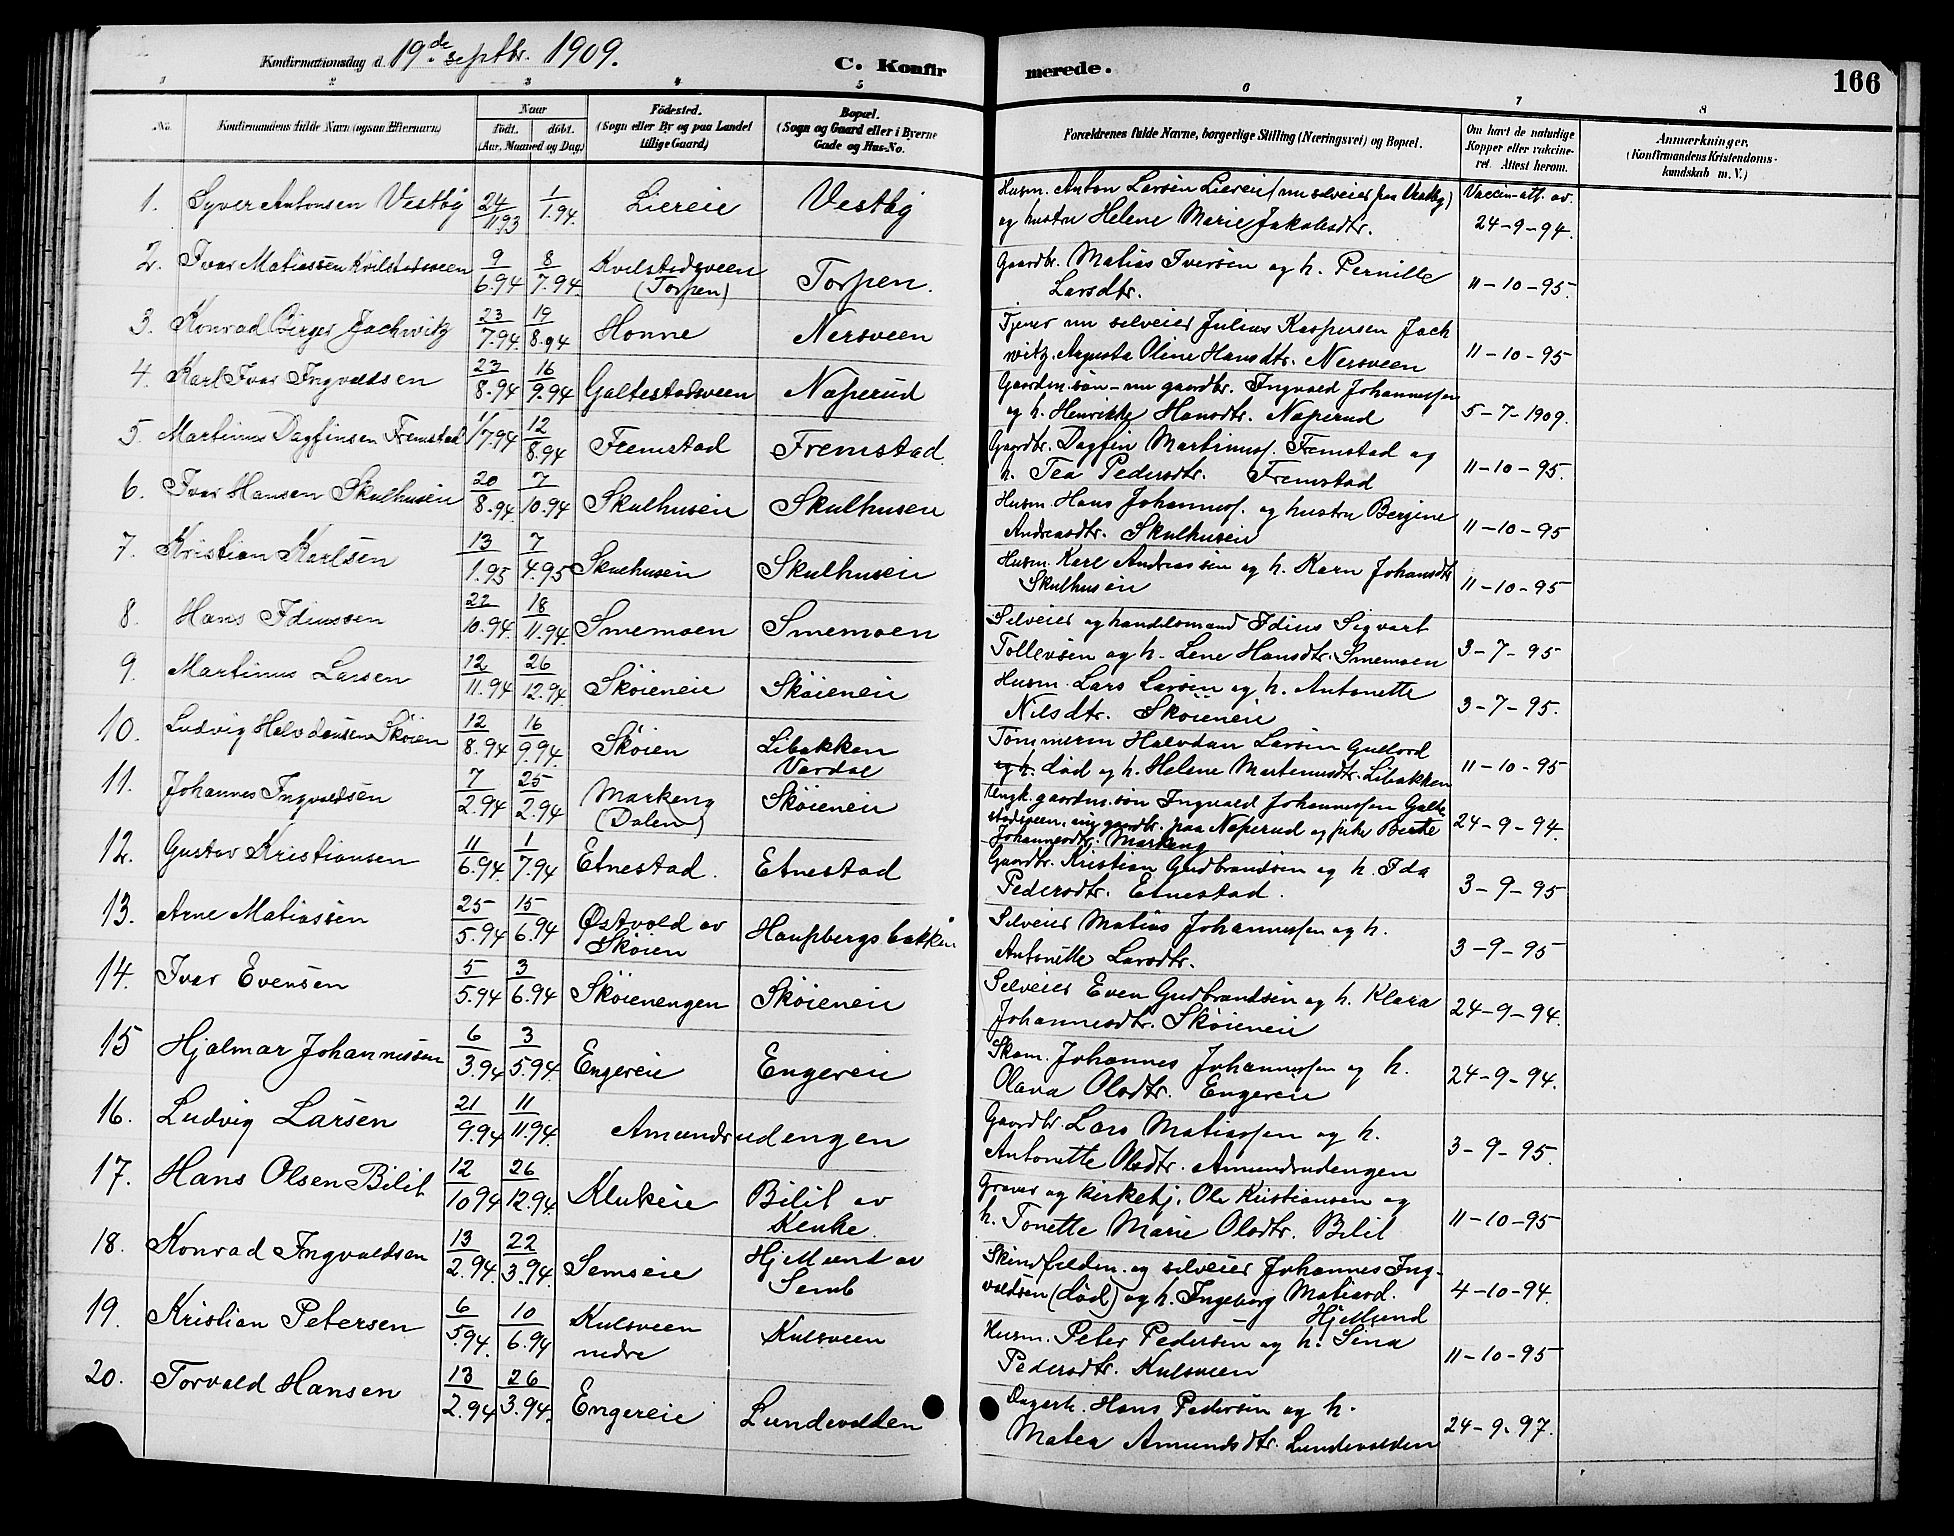 Konfirmationsdag d. 19de septbr. 1909.
C. Konfirmerede.
166
1 2 3 4 5 6 7 8
No.
Konfirmandens fulde Navn (ogsaa Efternavn)
Naar
født. døbt.
(Aar, Maaned og Dag)
Fødested.
(Sogn eller By og paa Landet
tillige Gaard)
Bopæl.
(Sogn og Gaard eller i Byerne
Gade og Hus-No.
Forældrenes fulde Navne, borgerlige Stilling (Næringsvei) og Bopæl.
Om havt de naturlige
Kopper eller vakcine-
ret. Attest herom.
Anmærkninger.
(Konfirmandens Kristendoms-
kundskab m. V.)
1. Syver Antonsen Vestby 24/11.93 1/1.94. Liereie Vestby
Husm. Anton Larsen Liereie (nu selveier paa Vestby)
og hustru Helene Marie Jakobsdtr.
Vaccin-att. av
24-9-94.
2. Ivar Matiassen Kvilstadsveen 9/6.94 8/7.94. Kvilstadsveen
(Torpen)
Torpen.
Gaardbr. Matias Iversen og h. Pernille
Larsdtr.
11-10-95.
3. Konrad Birger Jachwitz 23/7.94. 19/8.94 Honne Nersveen
Tjener nu selveier Julius Kaspersen Jach
witz. Augusta Oline Hansdtr. Nersveen
11-10-95
4. Karl Ivar Ingvaldsen 23/8.94 16/9.94 Galtestadsveen Næperud
Gaardm.søn - nu gaardbr. Ingvald Johannessen
og h. Henrikke Hansdtr. Næperud
5-7-1909.
5. Martinus Dagfinsen Fremstad 1/7.94 12/8.94 Fremstad Fremstad.
Gaardbr. Dagfin Martinuss. Fremstad og
h. Tea Pedersdtr. Fremstad
11-10-95.
6. Ivar Hansen Skulhusein 20/8.94. 7/10.94 Skulhusein Skulhusen
Husm. Hans Johanness. og hustru Bergine
Andreasdtr. Skulhusein
11-10-95
7. Kristian Karlsen 13/1.95 7/4.95 Skulhusein Skulhusein
Husm. Karl Andreassen og h. Karn Johansdtr
Skulhusein
11-10-95
8. Hans Idinssen 22/10.94. 18/11.94. Smemoen Smemoen
Selveier og handelsmand Idins Sigvart
Tollevsen og h. Lene Hansdtr. Smemoen
3-7-95
9. Martinus Larsen 12/11.94 26/12.94. Skøieneie Skøieneie
Husm. Lars Larsen og h. Antonette
Nilsdtr. Skøieneie
3-7-95.
10. Ludvig Halvdansen Skøien 12/8.94. 16/9.94. Skøien Libakken
Vardal
Tømmerm Halvdan Larsen Gullord
og h. død og h. Helene Martinusdtr. Libakken
11-10-95
11. Johannes Ingvaldsen 7/2.94 25/2.94 Markeng
(Dalen)
Skøieneie
Ungk. gaardm.søn Ingvald Johannessen Galte
stadsveen, nu gaardbr. paa Næperud og pike Berte
Johannesdtr. Markeng
24-9-94.
12. Gustav Kristiansen 11/6.94. 1/7.94 Etnestad. Etnestad
Gaardbr. Kristian Gudbrandsen og h. Ida
Pedersdtr. Etnestad.
3-9-95
13. Arne Matiassen 25/5.94 15/6.94 Østvold av
Skøien
Haugsbergsbakken
Selveier Matias Johannessen og h.
Antonette Larsdtr.
3-9-95
14. Ivar Evensen 5/5.94 3/6.94 Skøienengen Skøieneie
Selveier Even Gudbrandsen og h. Klara
Johannesdtr. Skøieneie
24-9-94.
15 Hjalmar Johannessen 6/3.94 3/5.94. Engereie Engereie
Skom. Johannes Johannessen og h.
Olava Olsdtr. Engereie
24-9-94.
16. Ludvig Larsen 21/9.94 11/11.94. Amundrudengen
Gaardbr. Lars Matiassen og h.
Antonette Olsdtr. Amundrudengen
3-9-95.
17. Hans Olsen Bilit 12/10 94 26/12.94. Klukeie Bilit av
Kluke.
Graver og kirketj. Ole Kristiansen og
h. Tonette Marie Olsdtr. Bilit
11-10-95
18. Konrad Ingvaldsen 13/2.94. 22/3.94. Semseie Hjellund av
Semb
Skindfelldm. og selveier Johannes Ing-
valdsen (død) og h. Ingeborg Matiasd.
Hjellund
4-10-94.
19. Kristian Petersen 6/5.94. 10/6.94 Kulsveen
nedre
Kulsveen
Husm. Peter Pedersen og h. Sina
Pedersdtr. Kulsveen
11-10-95
20. Torvald Hansen 13/2.94 26/3.94. Engereie Lundevolden
Dagarb. Hans Pedersen og h.
Matea Amundsdtr. Lundevolden
24-9-97.